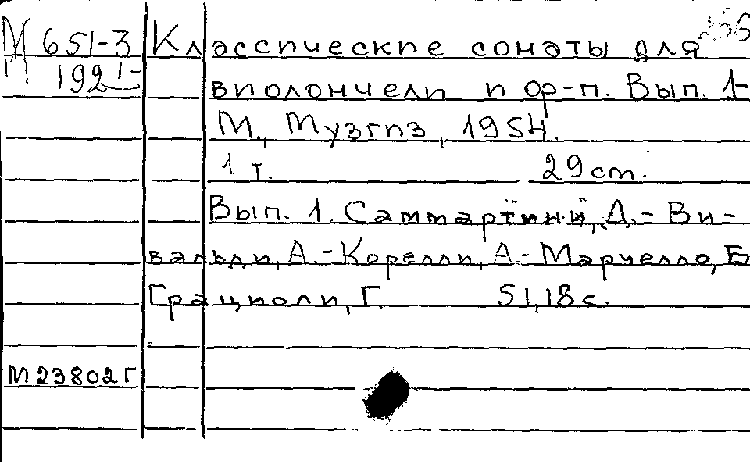 М 651-3
192
Классические сонаты для
виолончели и ф-п. Вып. 1-
М., Музгиз, 1954.
1 т. 29 cm.
Вып. 1. Саммартини, Д.- Ви-
вальди, А.-Корелли, А.-Марчелло, Б
Грациоли, Г. 51,18 с.
М23802г